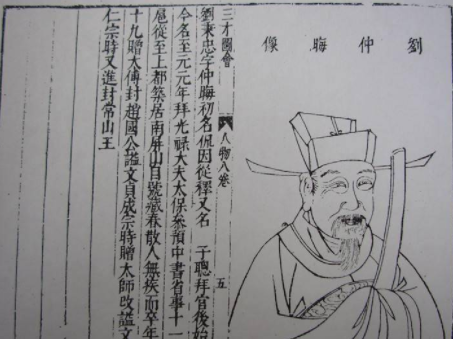 劉仲晦像
三才圖會 人物八卷 五
劉秉忠字仲晦初名侃因從釋又名 子聰拜官後始
今名至元元年拜光祿大夫太保叅預中書省事十一
扈從至上都築居南屏山自號藏春散人無疾而卒年
十九贈太傅封趙國公諡文貞成宗時贈太師改諡文
仁宗時又進封常山王